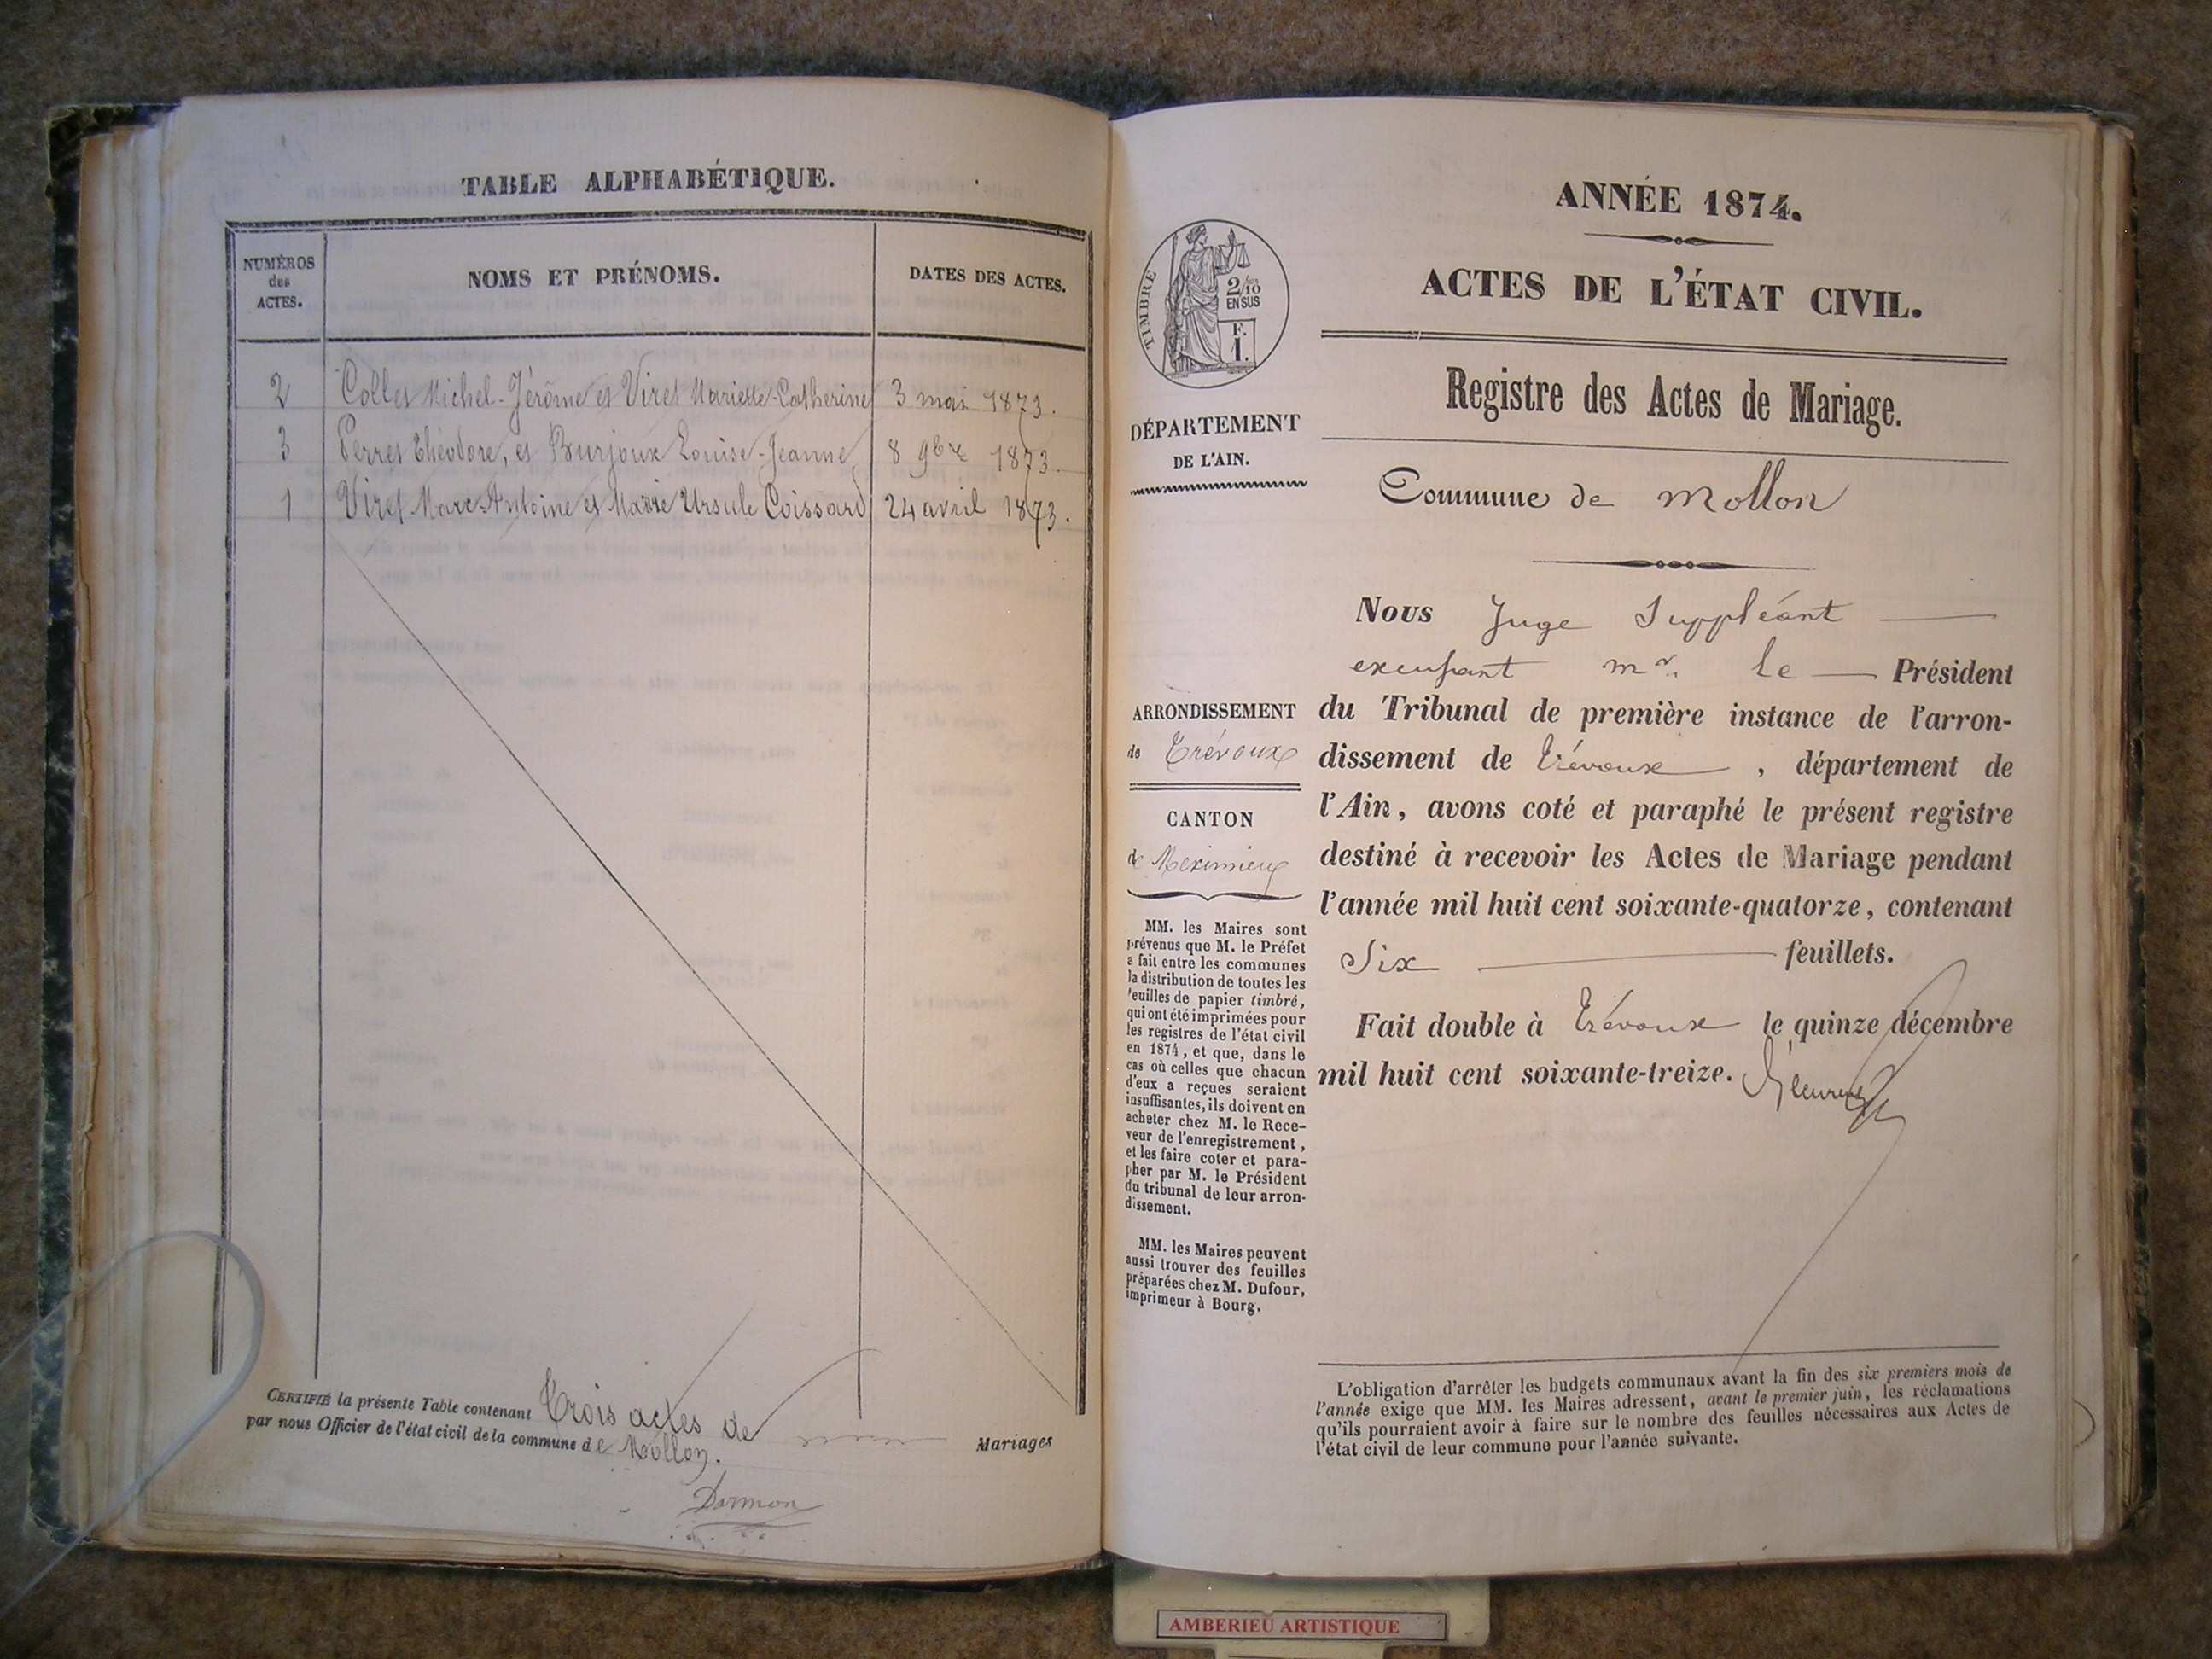 TABLE ALPHABÉTIQUE.
NUMÉROS
des
ACTES.
NOMS ET PRÉNOMS.
DATES DES ACTES.
2 Collet Michel-Jérôme et Viret Mariette-Catherine 3 mai 1873.
3 Perret Théodore, et Burjoux Louise-Jeanne, 8 9bre 1873.
1 Viret Marc Antoine et Marie Ursule Coissard 24 avril 1873.
CERTIFIÉ la présente Table contenant Trois actes de Mariages
par nous Officier de l'état civil de la commune de Mollon.
Dormon
ANNÉE 1874.
ACTES DE L'ÉTAT CIVIL.
TIMBRE
2/10
EN SUS
F.
1.
DÉPARTEMENT
DE L'AIN.
ARRONDISSEMENT
de Trévoux
CANTON
de Meximieux
MM. les Maires sont
prévenus que M. le Préfet
a fait entre les communes
la distribution de toutes les
feuilles de papier timbré,
qui ont été imprimées pour
les registres de l'état civil
en 1874, et que, dans le
cas où celles que chacun
d'eux a reçues seraient
insuffisantes, ils doivent en
acheter chez M. le Rece-
veur de l'enregistrement,
et les faire coter et para-
pher par M. le Président
du tribunal de leur arron-
dissement.
MM. les Maires peuvent
aussi trouver des feuilles
préparées chez M. Dufour,
imprimeur à Bourg.
Registre des Actes de Mariage.
Commune de Mollon
Nous Juge Suppléant
excusant Mr. le Président
du Tribunal de première instance de l'arron-
dissement de Trévoux, département de
l'Ain, avons coté et paraphé le présent registre
destiné à recevoir les Actes de Mariage pendant
l'année mil huit cent soixante-quatorze, contenant
Six feuillets.
Fait double à Trévoux le quinze décembre
mil huit cent soixante-treize.
L'obligation d'arrêter les budgets communaux avant la fin des six premiers mois de
l'année exige que MM. les Maires adressent, avant le premier juin, les réclamations
qu'ils pourraient avoir à faire sur le nombre des feuilles nécessaires aux Actes de
l'état civil de leur commune pour l'année suivante.
AMBERIEU ARTISTIQUE